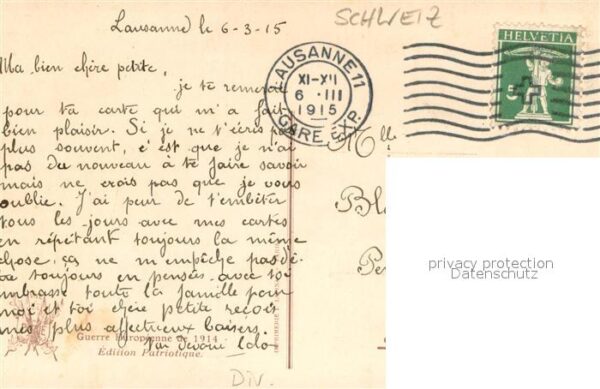 Lausanne le 6-3-15
SCHWEIZ
HELVETIA
5
LAUSANNE 11
XI-XII
6 . III
1915
GARE EXP.
Ma bien chère petite,
je te remercie
pour ta carte qui m'a fait
bien plaisir. Si je ne t'écris pas
plus souvent, c'est que je n'ai
pas du nouveau à te faire savoir
mais ne crois pas que je vous
oublie. J'ai peur de t'embêter
tous les jours avec mes cartes
en répétant toujours la même
chose, ça ne m'empêche pas d'
toujours en pensée avec toi
embrasse toute la famille pour
moi et toi chère petite reçoit
mes plus affectueux baisers.
Guerre Européenne de 1914
Edition Patriotique.
Ton
Mlle
Bl
privacy protection
Datenschutz
Div.